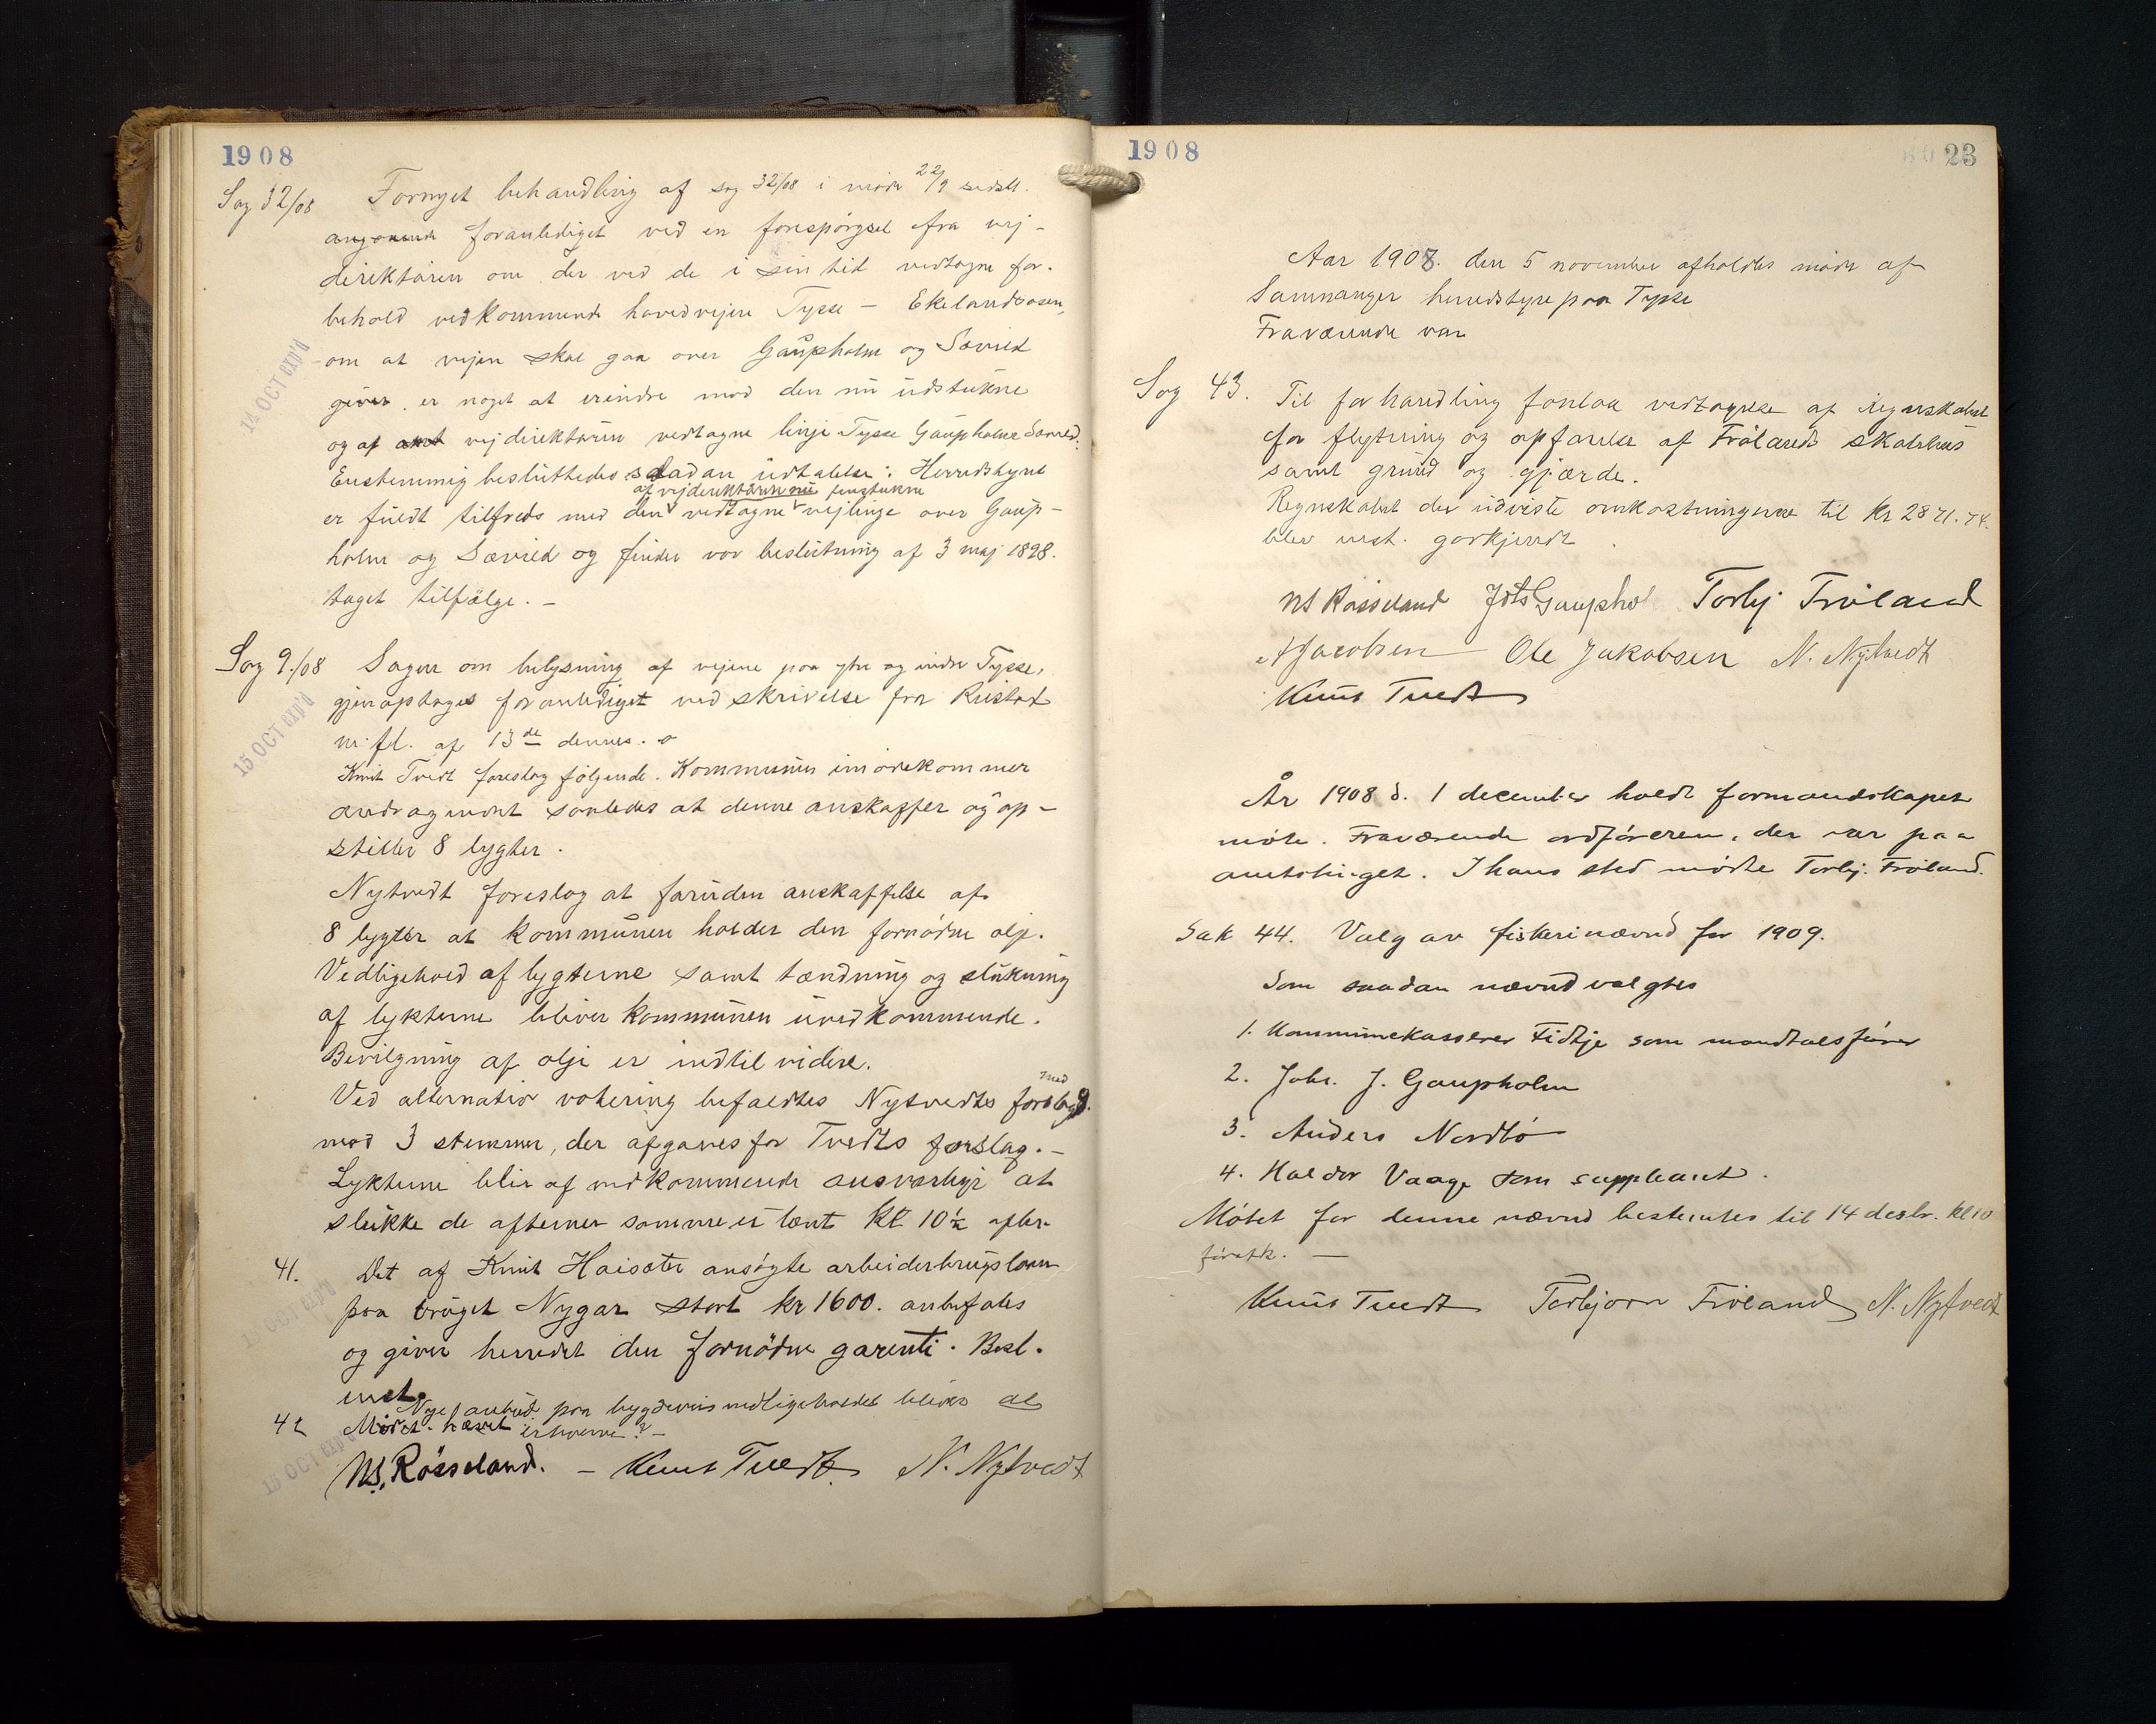 1908
Sag 32/08 Fornyet behandling af sag 32/08 i møde 22/9 sidstl.
angaaende foranlediget ved en forespörgsel fra vej-
direktören om der ved de i sin tid vedtagne for-
behold vedkommende hovedvejene Tysse - Ekelandsosen,
om at vejen skal gaa over Gaupholm og Sævild
giver er noget at erindre mod den nu udstukne
og af amt vejdirektören vedtagne linje Tysse Gaupholm Sævild.
14 OCT exp'd
Enstemmig besluttedes sladan udtalelse: Herredstyret
af vejdirektören nu
er fuldt tilfreds med den vedtagne vejlinje over Gaup-
holm og Sævild og finder vor beslutning af 3 maj 1898.
taget tilfölge. -
Sag 9./08 Sagen om belysning af vejene paa ytre og indre Tysse,
gjenoptages foranlediget ved skrivelse fra Rustad
m. fl. af 13de dennes.
15 OCT exp'd
Knut Tvedt foreslog følgende. Kommunen imödekommer
andragendet saaledes at denne anskaffer og op-
stiller 8 lygter.
Nytvedt foreslog at foruden anskaffelse af
8 lygter at kommunen holder den fornödne olje.
Vedligehold af lygterne samt tændning og slukning
af lykterne bliver kommunen uvedkommende.
Bevilgning af olje er indtil videre.
Ved alternativ votering befaldtes Nytvedts forslag med 9.
mod 3 stemmer, der afgaves for Tvedts forslag. -
Lykterne blir af vedkommende ansvarlige at
slukke de aftener somme er tænt kl 10½ efter-
41. Det af Knut Haisæter ansögte arbeiderbrugslaan
paa bruget Nygar stort kr 1600. anbefales
og giver herredet den fornödne garenti. Besl.
enst.
42 Nye anbud paa bygdeveis vedligeholdet blives at
Mödet hævet erhverve? -
15 OCT exp'd
NS. Rösseland. - Knut Tvedt N. Nytvedt
1908
23
Aar 1908. den 5 november afholdtes möde af
Samnanger herredstyre paa Tysse
Fraværende var
Sag 43. Til forhandling forelaa vedtagelse af regnskabet
for flytning og opförelse af Frölands skolehus
samt grund og gjærde.
Regnskabet der udviste omkostningerne til kr 2871.74.
blev enst. godkjendt.
NS Rösseland Johs Gauphol Torbj Fröland
A Jacobsen Ole Jakobsen N. Nytvedt
Knut Tvedt
År 1908 d. 1 december holdt formandskapet
möte. Fraværende ordföreren, der var paa
amtstinget. I hans sted mödte Torbj. Fröland.
Sak 44. Valg av fiskerinævnd for 1909.
Som saadan nævnd valgtes
1. Kommunekasserer Tidtje som mandtalsförer
2. Johs. J. Gaupholm
3. Anders Nordbö
4. Haldor Vaage som suppleant.
Mötet for denne nævnd bestemtes til 14 desbr. kl 10
form. -
Knut Tvedt Torbjörn Fröland N. Nytvedt